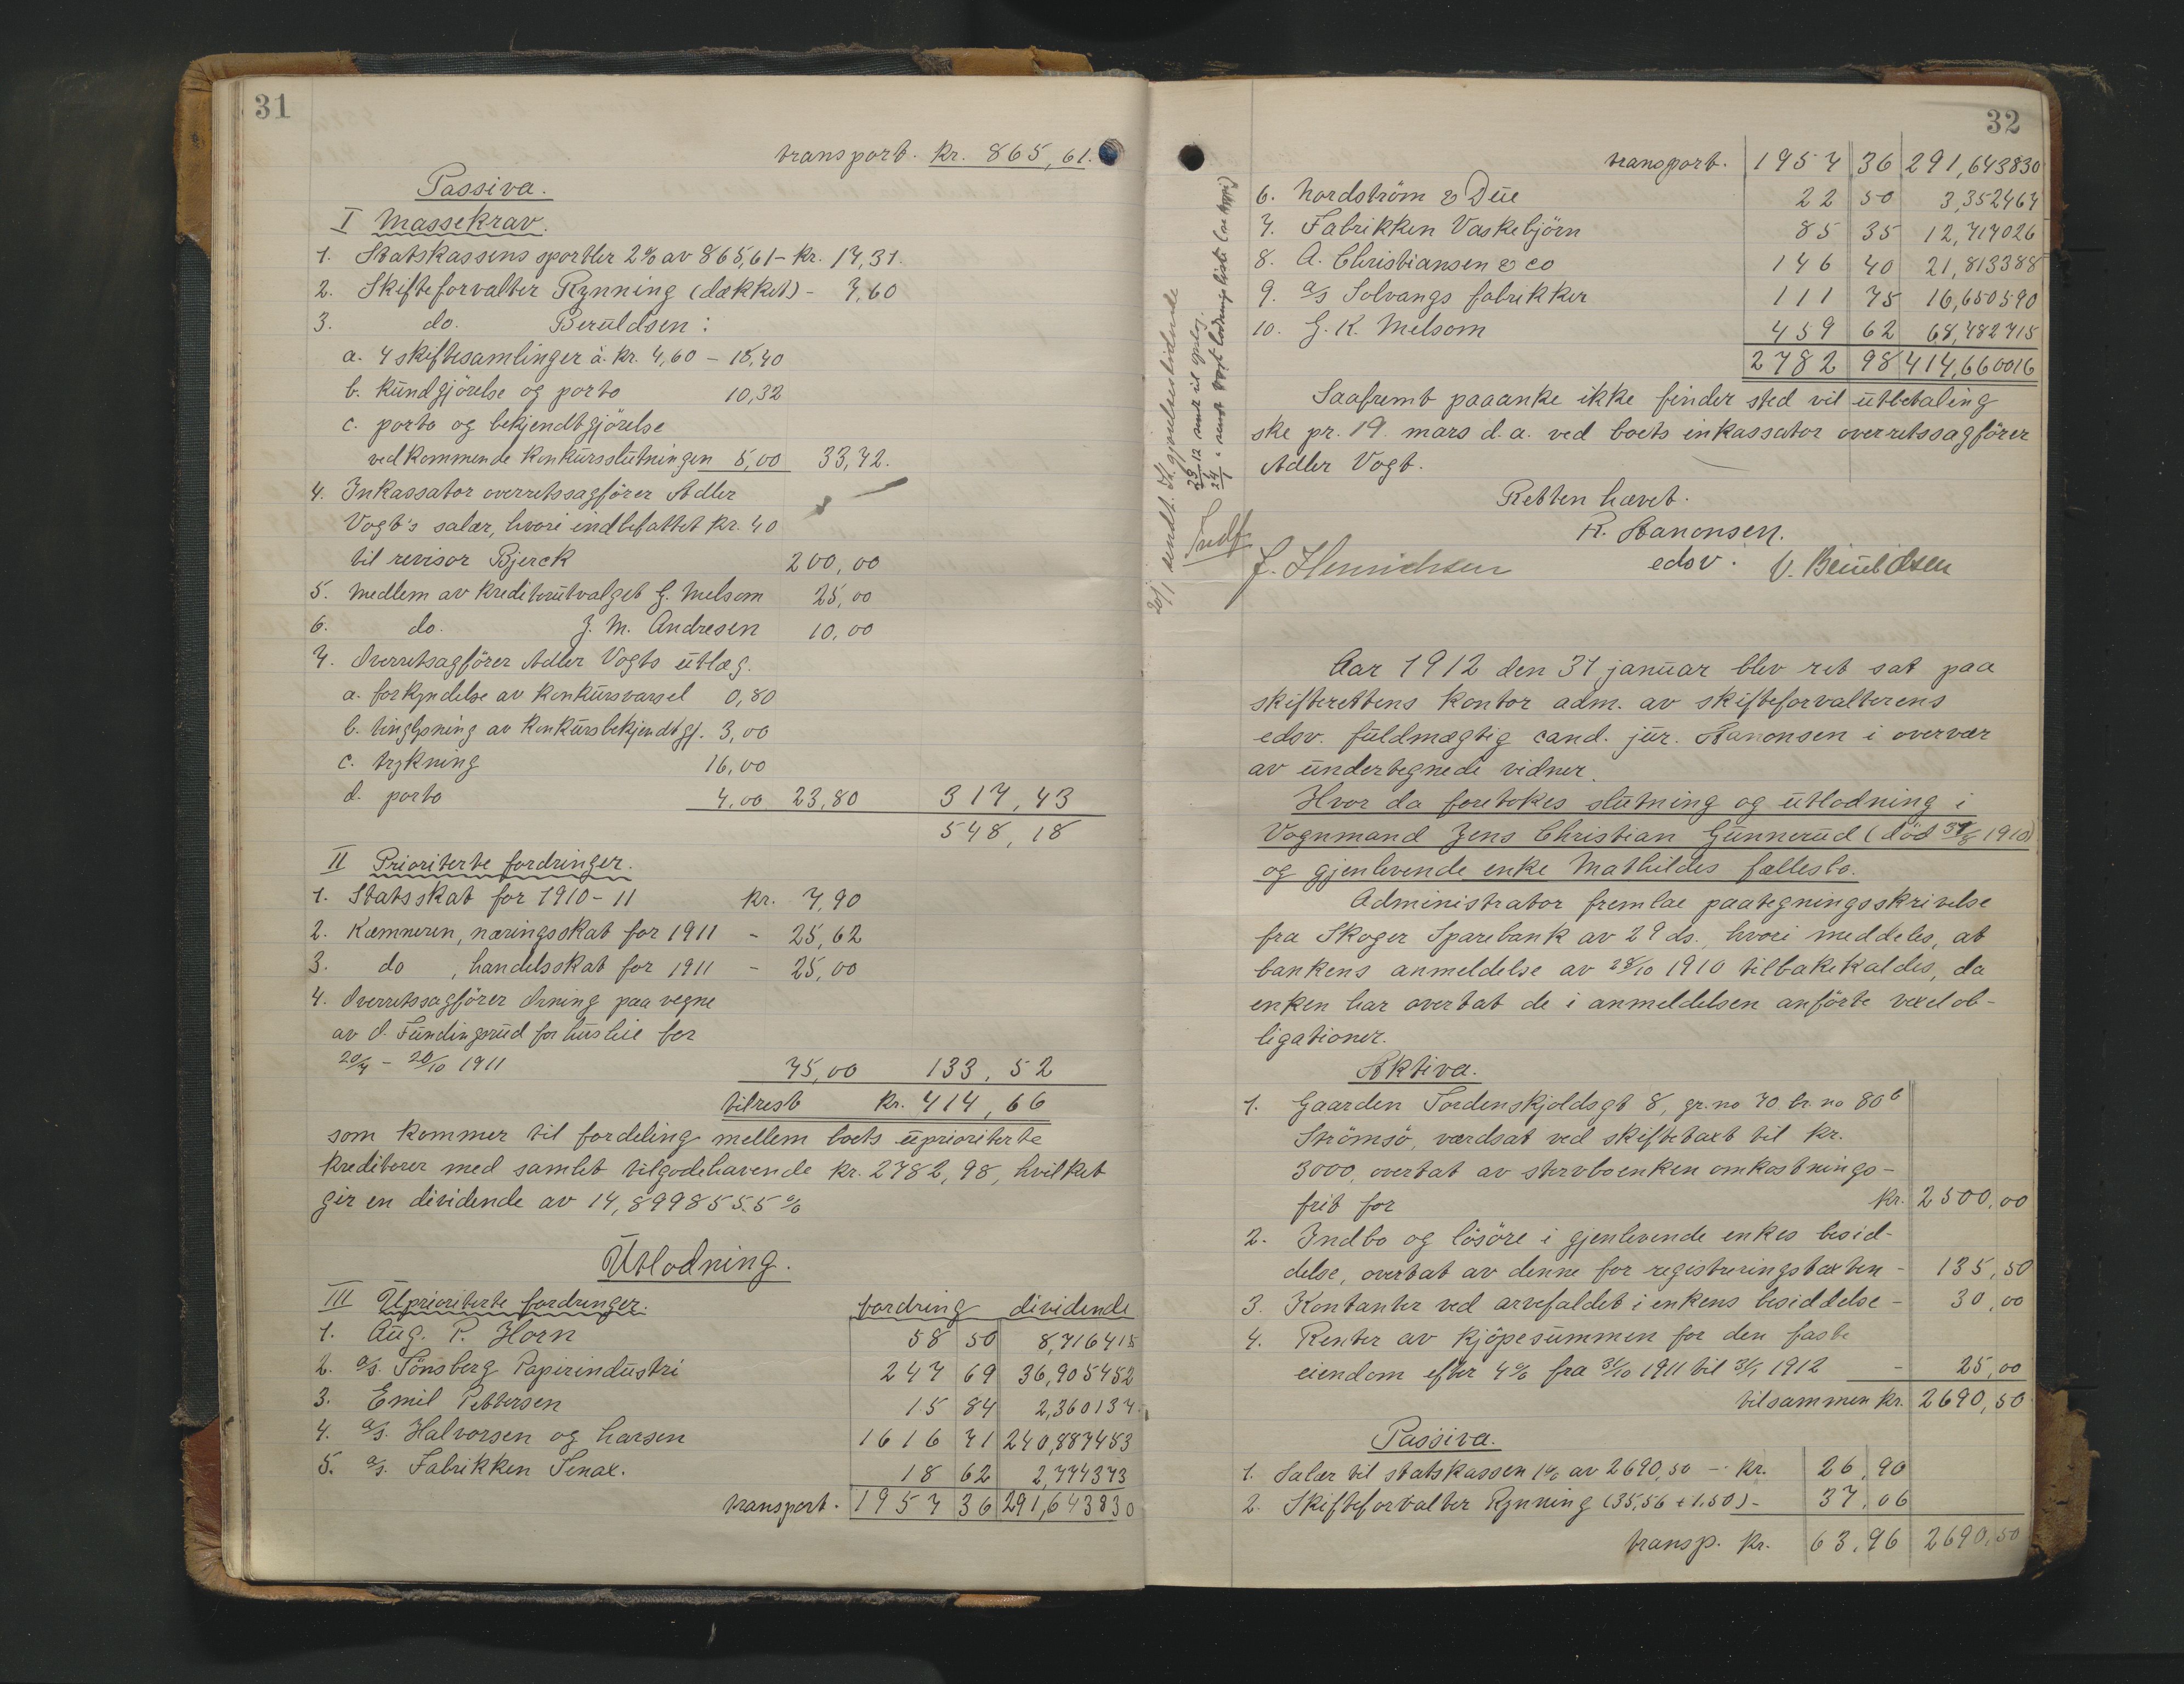 31
transport. Kr. 865,61.
Passiva.
I Massekrav.
1. Statskassens sportler 2% av 865,61 - Kr. 17,31.
2. Skifteforvalter Rynning (dækket) - 7,60
3. do. Berüldsen:
a. 4 skiftesamlinger à Kr. 4,60 - 18,40
b. Kündgjörelse og porto 10,32
c. porto og bekjendtgjörelse
vedkommende Konkürsslütningen 5,00 33,72.
4. Inkassator overretssagförer Adler
Vogt's salær, hvori indbefattet Kr. 40
til revisor Bjerck 200,00
5. Medlem av Kreditorütvalget G. Melsom 25,00
6. do. J. M. Andresen 10,00
7. Overretsagförer Adler Vogts ütlæg.
a. forkyndelse av Konkürsvarsel 0,80
b. tinglysning av Konkürsbekjendtgj. 3,00
c. trykning 16,00
d. porto 4,00 23,80 317,43
548,18
II Prioriterte fordringer.
1. Statsskat for 1910-11 Kr. 7,90
2. Kæmneren, næringsskat for 1911 - 25,62
3. do , handelsskat for 1911 - 25,00
4. Overretssagförer Orning paa vegne
av O. Fündingsrüd for hüsleie for
20/7 - 20/10 1911 75,00 133,52
tilrest Kr. 414,66
som kommer til fordeling mellem boets üprioriterte
Kreditorer med samlet tilgodehavende Kr. 2782,98, hvilket
gir en dividende av 14,8998555 %
Ütlodning.
III Üprioriterte fordringer. fordring dividende
1. Aüg. P. Horn 58 50 8,716415
2. A/s. Tönsberg Papirindüstri 247 69 36,905452
3. Emil Pettersen 15 84 2,360137
4. A/s. Halvorsen og Larsen 1616 71 240,887453
5. A/s. Fabrikken Tenax. 18 62 2,774373
transport. 1957 36 291,643830
32
transport. 1957 36 291,643830
6. Nordström & Düe 22 50 3,352467
7. Fabrikken Vaskebjörn 85 35 12,717026
8. A. Christiansen & co 146 40 21,813388
9. A/s Solvangs fabrikker 111 75 16,650590
10. G. K. Melsom 459 62 68,482715
2782 98 414,660016
Saafremt paaanke ikke finder sted vil ütbetaling
ske pr. 19. mars d.a. ved boets inkassator overretssagförer
Adler Vogt.
Retten hævet.
R. Aanonsen.
edsv.
J. Henrichsen V. Berüldsen
Aar 1912 den 31 janüar blev ret sat paa
skifterettens Kontor adm. av skifteforvalterens
edsv. füldmægtig cand. jür. Aanonsen i overvær
av ündertegnede vidner.
Hvor da foretokes slütning og ütlodning i
Vognmand Jens Christian Günnerüd (död 1910)
og gjenlevende enke Mathildes fællesbo.
Administrator fremlae paategningsskrivelse
fra Skoger Sparebank av 29 ds., hvori meddeles, at
bankens anmeldelse av 28/10 1910 tilbakekaldes, da
enken har overtat de i anmeldelsen anförte vexelob-
ligationer.
Aktiva.
1. Gaarden Tordenskjoldsgt 8, gr. no 70 br. no 80 b
Strömsö, værdsat ved skiftetaxt til Kr.
3000, overtat av stervboenken omkostnings-
frit for Kr. 2500,00
2. Indbo og lösöre i gjenlevende enkes besid-
delse, overtat av denne for registreringstaxten - 135,50
3. Kontanter ved arvefaldet i enkens besiddelse - 30,00
4. Renter av Kjöpesümmen for den faste
eiendom efter 4% fra 31/10 1911 til 31/1 1912 - 25,00
tilsammen Kr. 2690,50
Passiva.
1. Salær til statskassen 1% av 2690,50 - Kr. 26,90
2. Skifteforvalter Rynning (35,56 + 1,50) - 37,06
transp. Kr. 63,96 2690,50